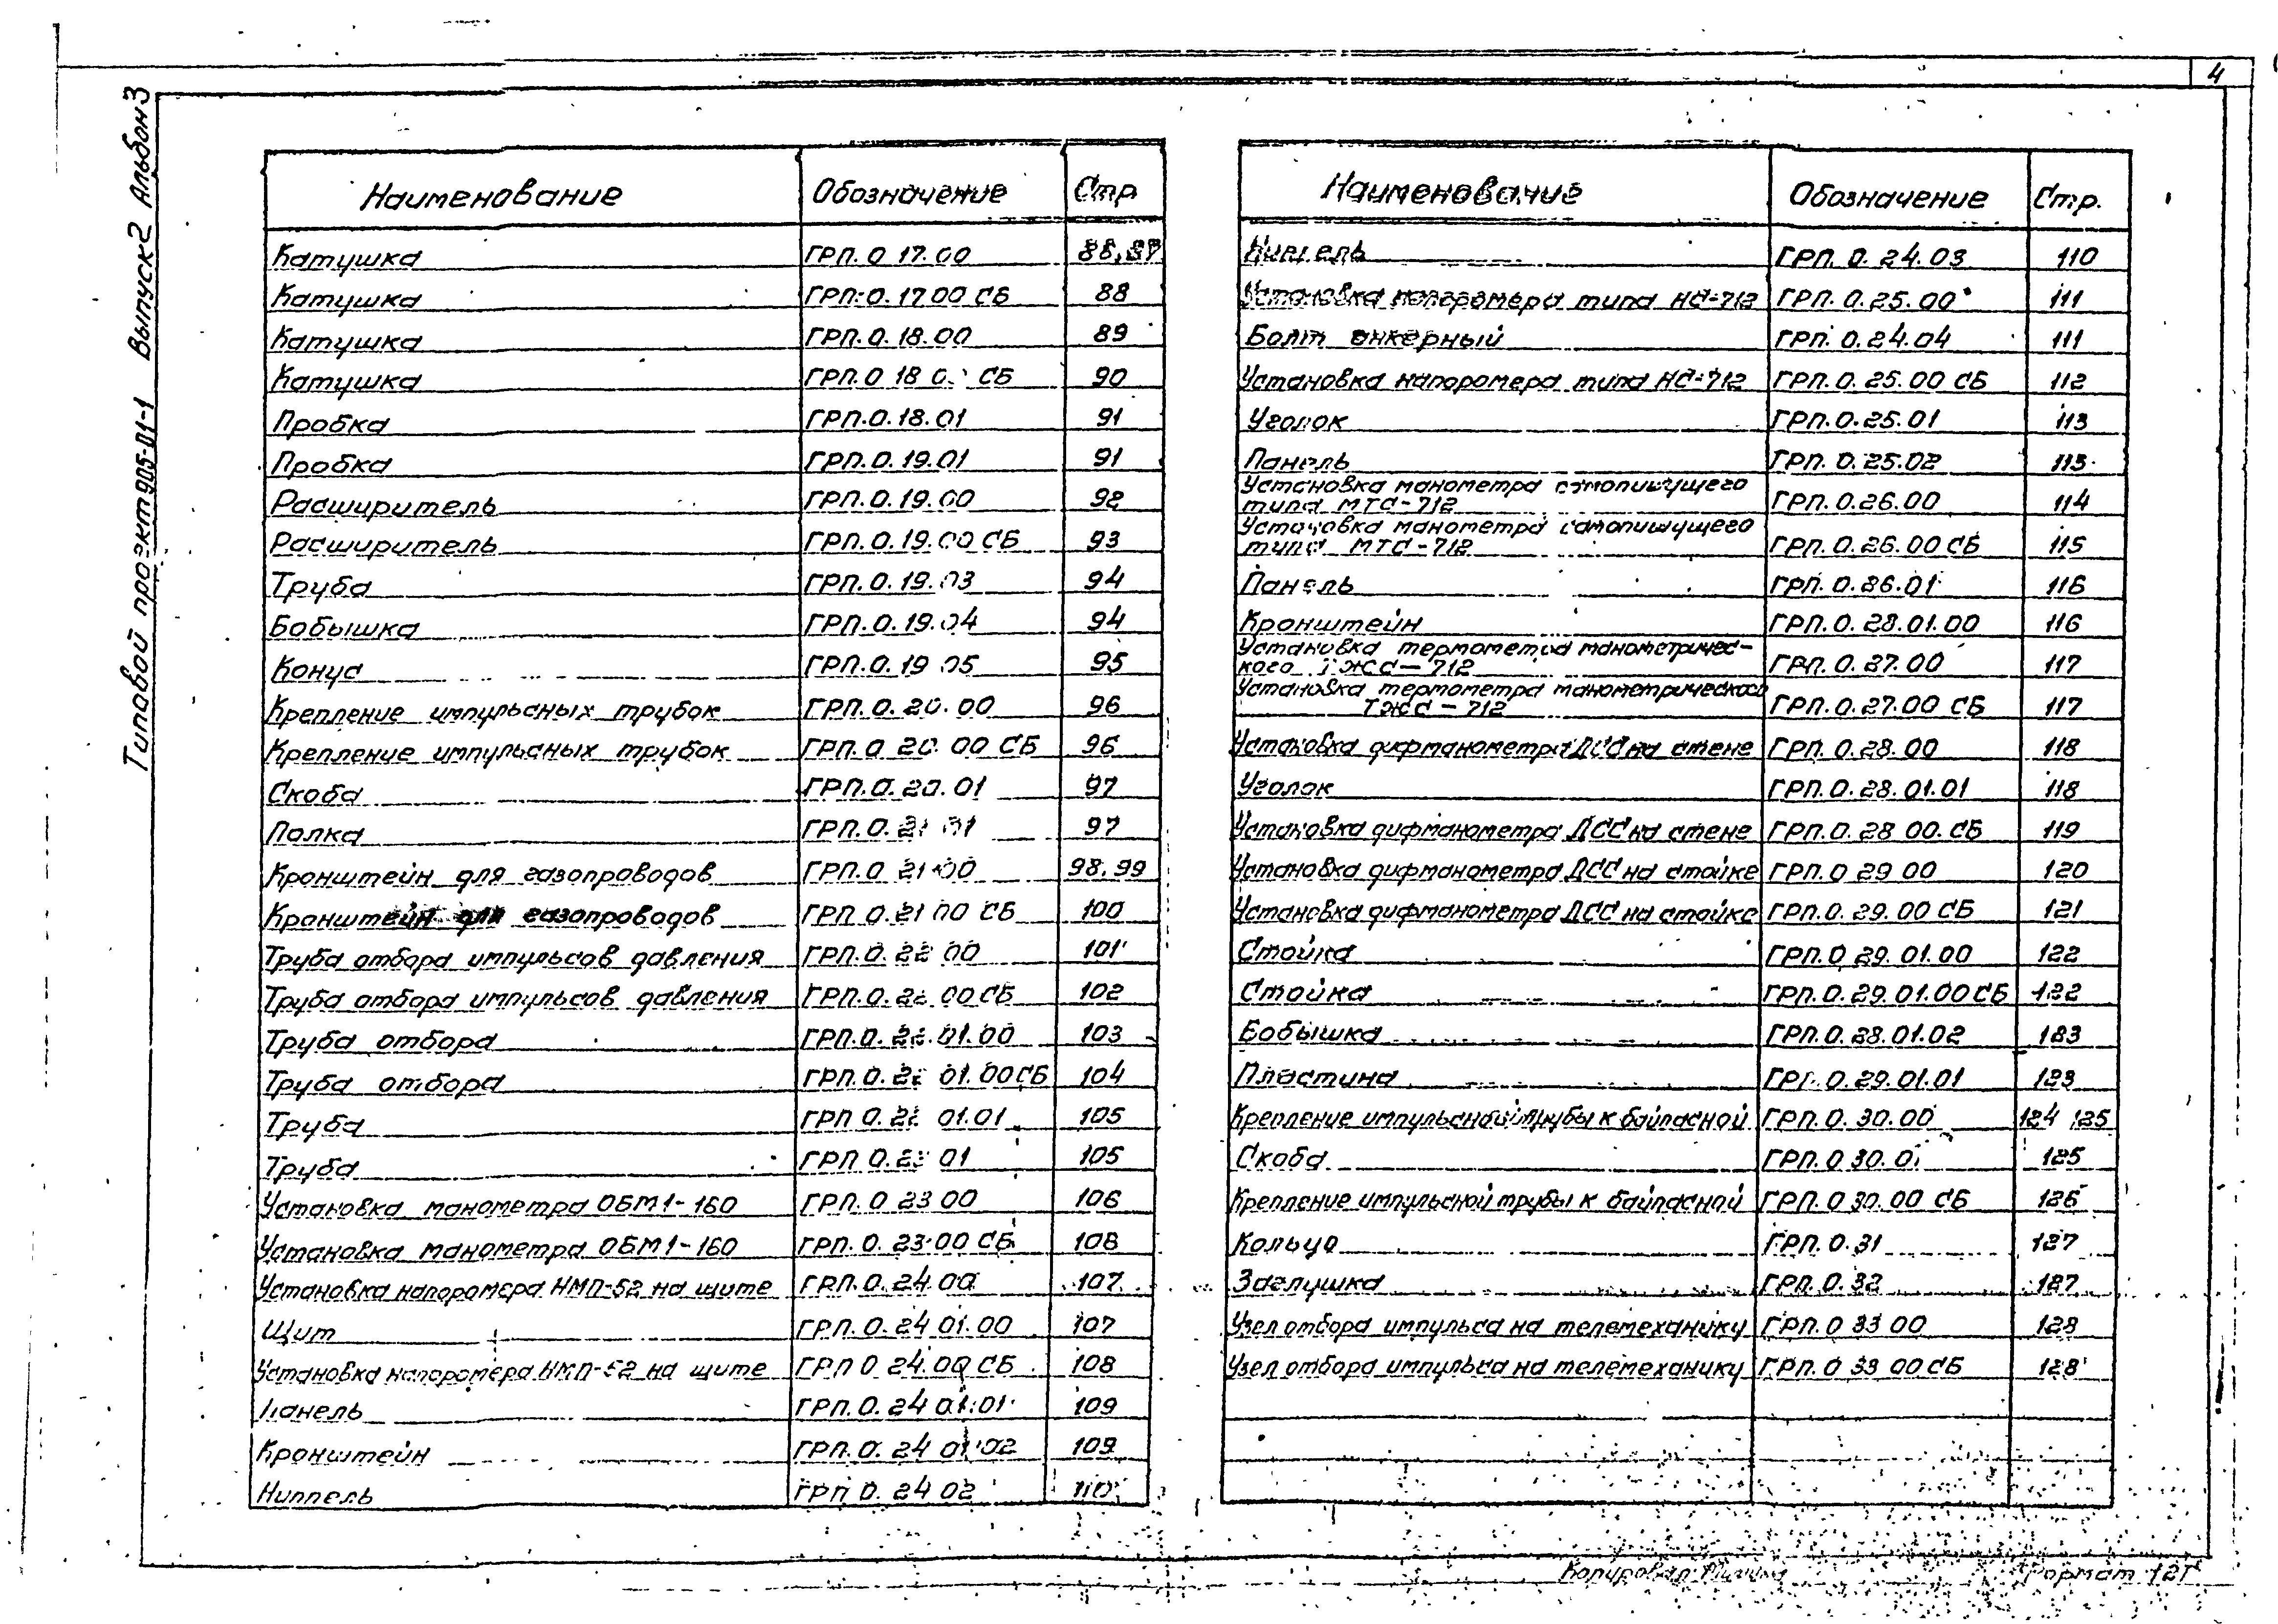 4
Типовой проэкт 905-01-1 Выпуск 2 Альбом 3
Наименование Обозначение Стр
Катушка ГРП.О 17.00
Катушка ГРП.О.17.00 СБ 88
Катушка ГРП.О.18.00 89
Катушка ГРП.О 18 СБ 90
Пробка ГРП.О.18.01 91
Пробка ГРП.О.19.01 91
Расширитель ГРП.О.19.00 92
Расширитель ГРП.О.19.00 СБ 93
Труба ГРП.О.19.03 94
Бобышка ГРП.О.19.04 94
Конус ГРП.О.19 05 95
Крепление импульсных трубок ГРП.О.20.00 96
Крепление импульсных трубок ГРП.О 20.00 СБ 96
Скоба ГРП.О.20.01 97
Полка ГРП.О.21 01 97
Кронштейн для газопроводов ГРП.О 21.00 98,99
Кронштейн для газопроводов ГРП О.21 00 СБ 100
Труба отбора импульсов давления ГРП.О.22 00 101
Труба отбора импульсов давления ГРП.О.22 00 СБ 102
Труба отбора ГРП.О.22.01.00 103
Труба отбора ГРП.О.22 01.00 СБ 104
Труба ГРП О.22 01.01 105
Труба ГРП О. 01 105
Установка манометра ОБМ1-160 ГРП.О 23 00 106
Установка манометра ОБМ1-160 ГРП.О.23.00 СБ 106
Установка напоромера НМП-52 на щите ГРП.О.24.00 107
Щит ГРП.О.24 01.00 107
Установка напоромера НМП-52 на щите ГРП О 24.00 СБ 108
Панель ГРП.О.24 01.01 109
Кронштейн ГРП.О.24 01.02 109
Ниппель ГРП О.24 02 110
Наименование Обозначение Стр.
Ниппель ГРП.О.24.03 110
Установка напоромера типа НС-712 ГРП.О.25.00 111
Болт анкерный ГРП.О.24.04 111
Установка напоромера типа НС-712 ГРП.О.25.00 СБ 112
Уголок ГРП.О.25.01 113
Панель ГРП.О.25.02 113
Установка манометра самопишущего
типа МТС-712 ГРП.О.26.00 114
Установка манометра самопишущего
типа МТС-712 ГРП.О.26.00 СБ 115
Панель ГРП.О.26.01 116
Кронштейн ГРП.О.28.01.00 116
Установка термометра манометричес-
кого ТЖС-712 ГРП.О.27.00 117
Установка термометра манометрического
ТЖС-712 ГРП.О.27.00 СБ 117
Установка дифманометра ДСС на стене ГРП.О.28.00 118
Уголок ГРП.О.28.01.01 118
Установка дифманометра ДСС на стене ГРП.О.28 00.СБ 119
Установка дифманометра ДСС на стойке ГРП.О 29 00 120
Установка дифманометра ДСС на стойке ГРП.О.29.00 СБ 121
Стойка ГРП.О 29.01.00 122
Стойка ГРП.О.29.01.00 СБ 122
Бобышка ГРП.О.28.01.02 123
Пластина ГРП.О.29.01.01 123
Крепление импульсной трубы к байпасной ГРП.О.30.00 124 125
Скоба ГРП.О 30.01 125
Крепление импульсной трубы к байпасной ГРП.О 30.00 СБ 126
Кольцо ГРП.О.31 127
Заглушка ГРП.О.32 127
Узел отбора импульса на телемеханику ГРП.О 33 00 128
Узел отбора импульса на телемеханику ГРП.О 33 00 СБ 128
Копировал
Формат 12Г